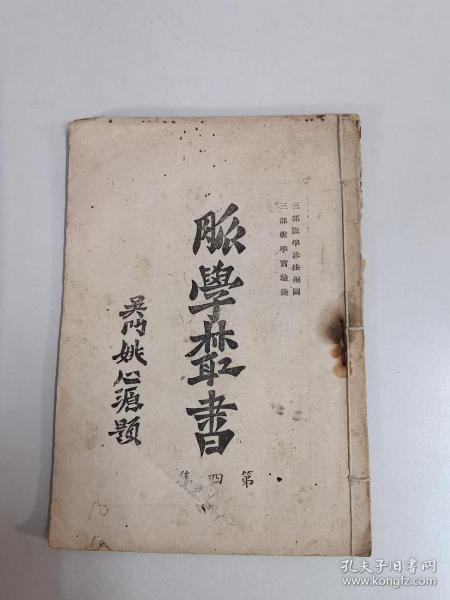 三部脈學診法補圖
三部脈學實驗錄
脈學叢書
第四集
吳門姚心源題
孔夫子旧书网
www.kongfz.com